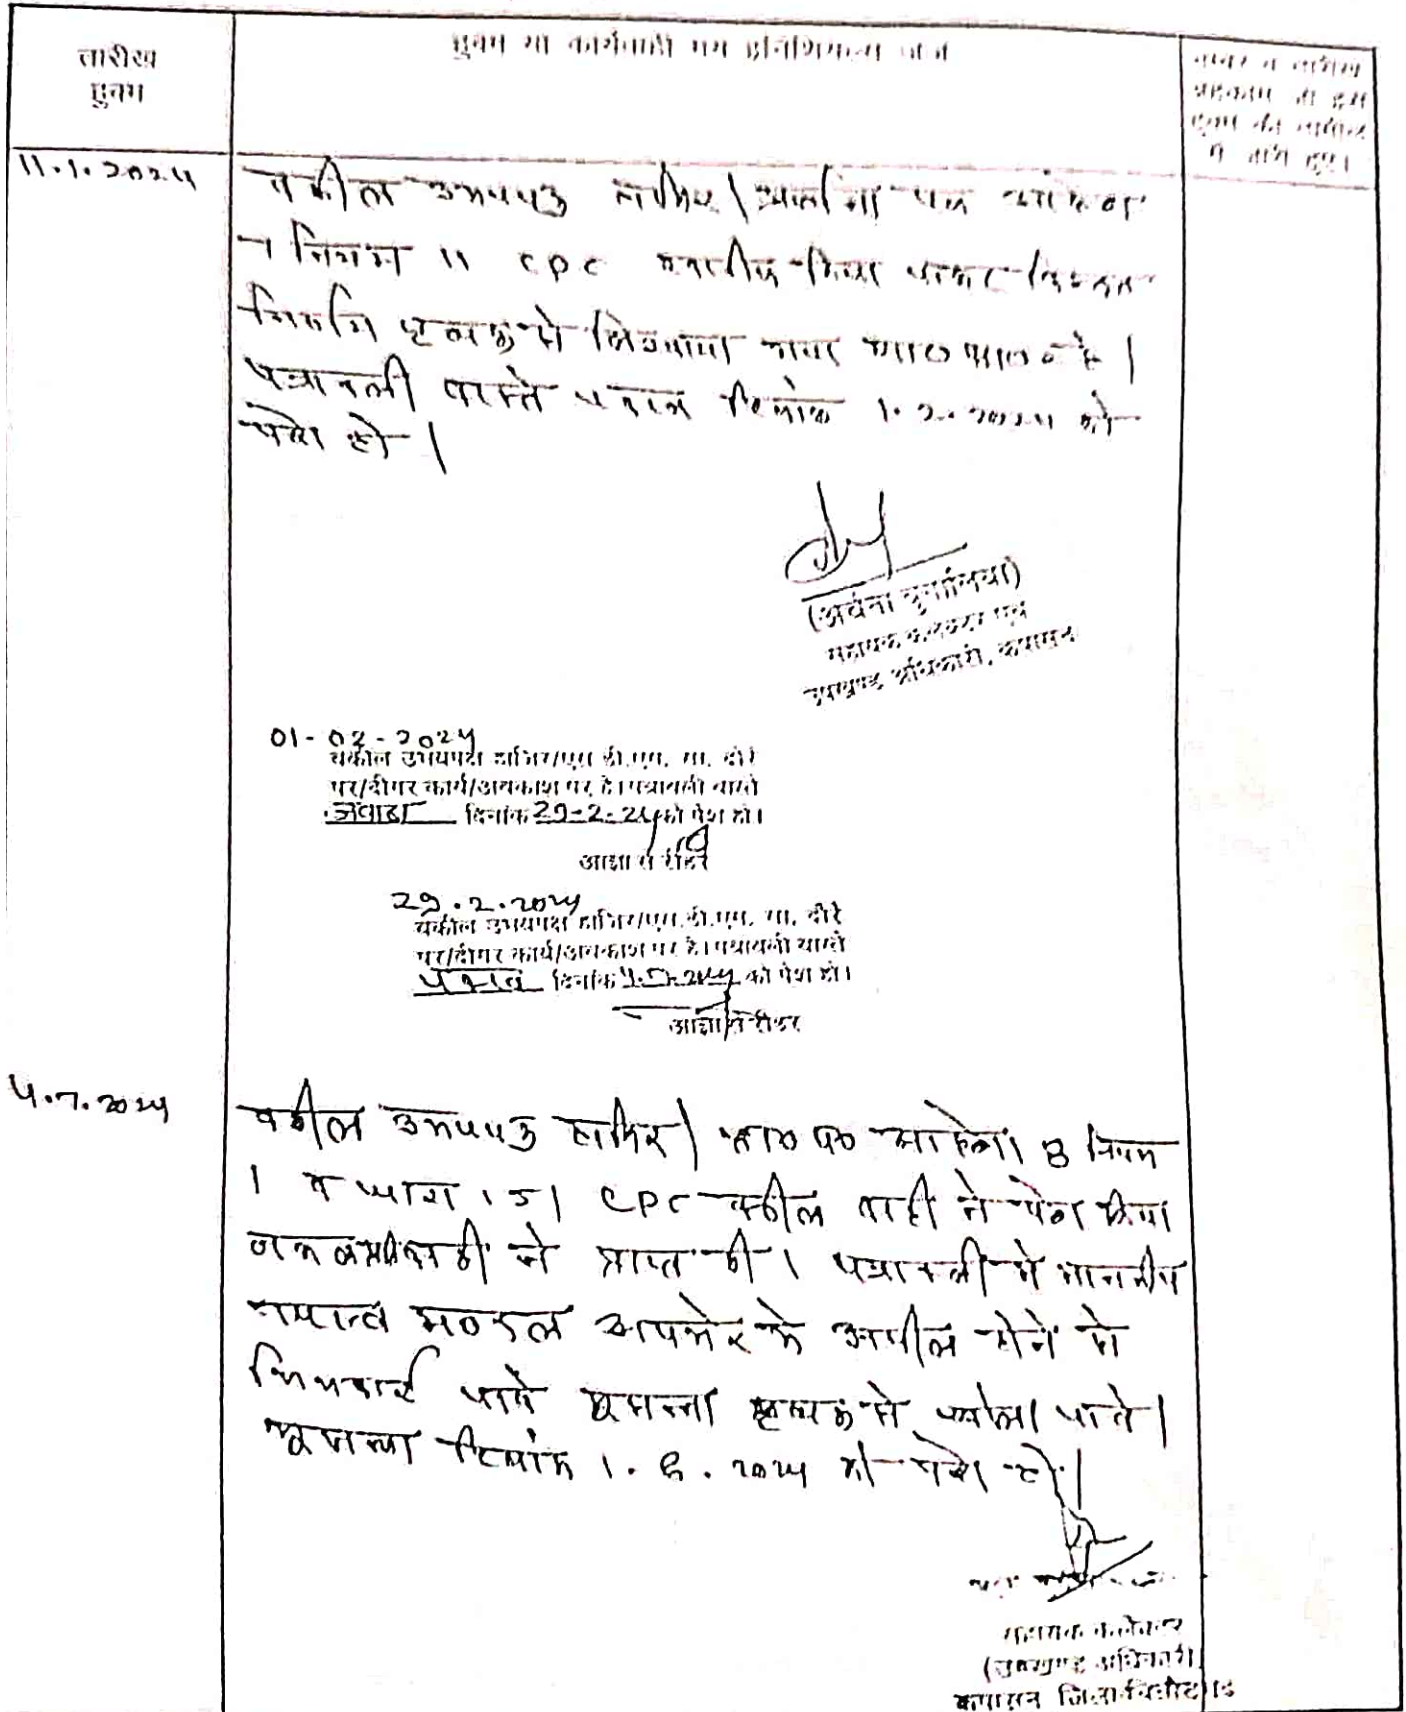 तारीख
हुक्म
हुक्म या कार्यवाही मय इनिशियल्स जज
नम्बर व तारीख
अहकाम जो इस
हुक्म की तामील
में जारी हुए।
11.1.2024
वकील उभयपक्ष हाजिर। प्रार्थना पत्र आदेश
7 नियम 11 CPC किया जाकर विस्तृत
निर्णय पृथक से लिखवाया गया है।
पत्रावली वास्ते जवाब दिनांक 1.2.2024 को
पेश हो।
(अर्चना बुगालिया)
सहायक कलेक्टर एवं
उपखण्ड अधिकारी, कपासन
01-02-2024
वकील उभयपक्ष हाजिर/एस.डी.एम. सा. दौरे
पर/दीगर कार्य/अवकाश पर है। पत्रावली वास्ते
जवाब दिनांक 29-2-24 को पेश हो।
आज्ञा से रीडर
29.2.2024
वकील उभयपक्ष हाजिर/एस.डी.एम. सा. दौरे
पर/दीगर कार्य/अवकाश पर है। पत्रावली वास्ते
जवाब दिनांक को पेश हो।
आज्ञा से रीडर
4.7.2024
वकील उभयपक्ष हाजिर। आदेश 8 नियम
1 व धारा 151 CPC वकील वादी ने पेश किया
नकल ने प्राप्त की। पत्रावली में माननीय
राजस्व मण्डल अजमेर के अपील होने से
पृथक से खोला जावे।
दिनांक 1.8.2024 को पेश हो।
सहायक कलेक्टर
(उपखण्ड अधिकारी)
कपासन जिला-चित्तौड़गढ़